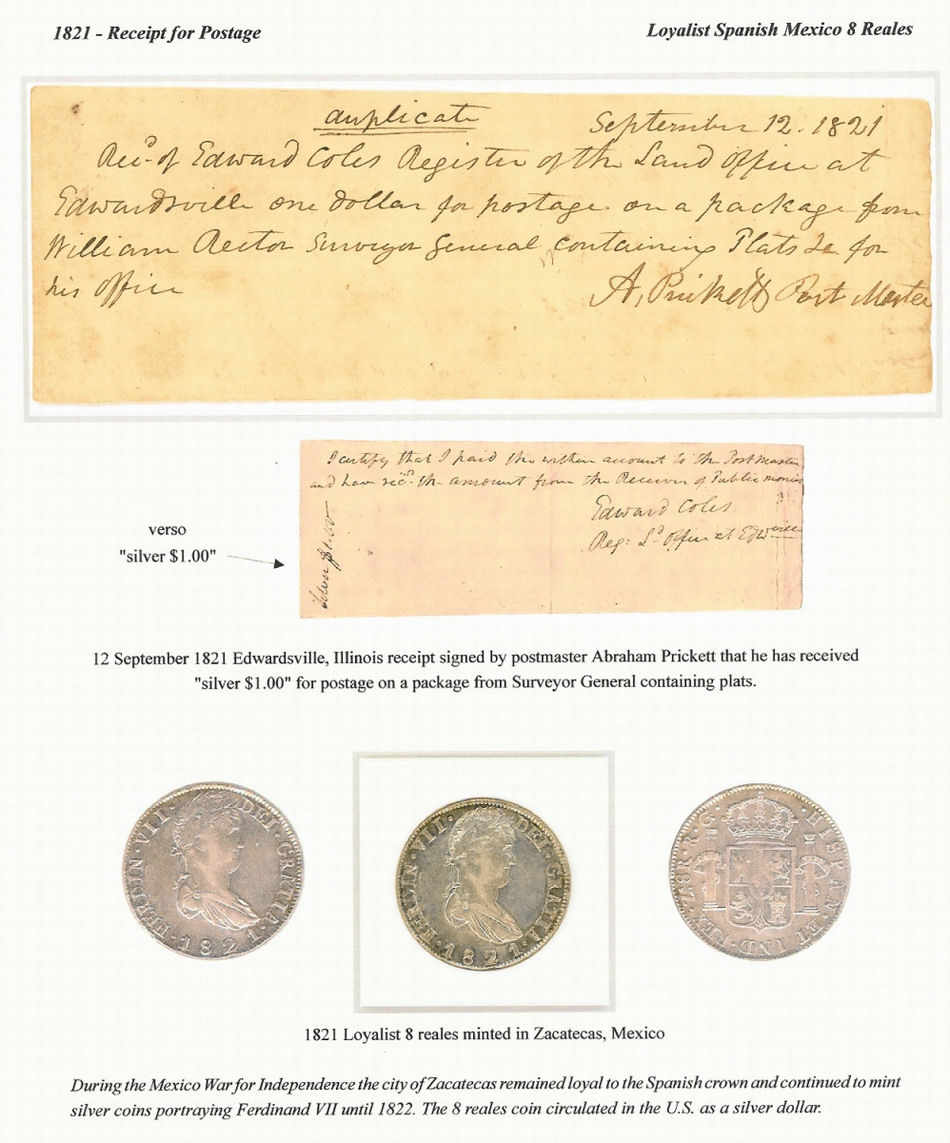 1821 - Receipt for Postage
Loyalist Spanish Mexico 8 Reales
duplicate
September 12. 1821
Recd of Edward Coles Register of the Land Office at
Edwardsville one dollar for postage on a package from
William Rector Surveyor General containing Plats &c for
his office
A, Prickett Post Master
I certify that I paid the within account to the Postmaster
and have recd the amount from the Receiver of Public monies
Edward Coles
Reg: Ld Office at Edwville
silver $1.00
verso
"silver $1.00"
12 September 1821 Edwardsville, Illinois receipt signed by postmaster Abraham Prickett that he has received
"silver $1.00" for postage on a package from Surveyor General containing plats.
FERDIN·VII·DEI·GRATIA
·1821·
FERDIN·VII·DEI·GRATIA
·1821·
·HISPAN·ET IND·REX·Zs·8R·R·G·
1821 Loyalist 8 reales minted in Zacatecas, Mexico
During the Mexico War for Independence the city of Zacatecas remained loyal to the Spanish crown and continued to mint
silver coins portraying Ferdinand VII until 1822. The 8 reales coin circulated in the U.S. as a silver dollar.